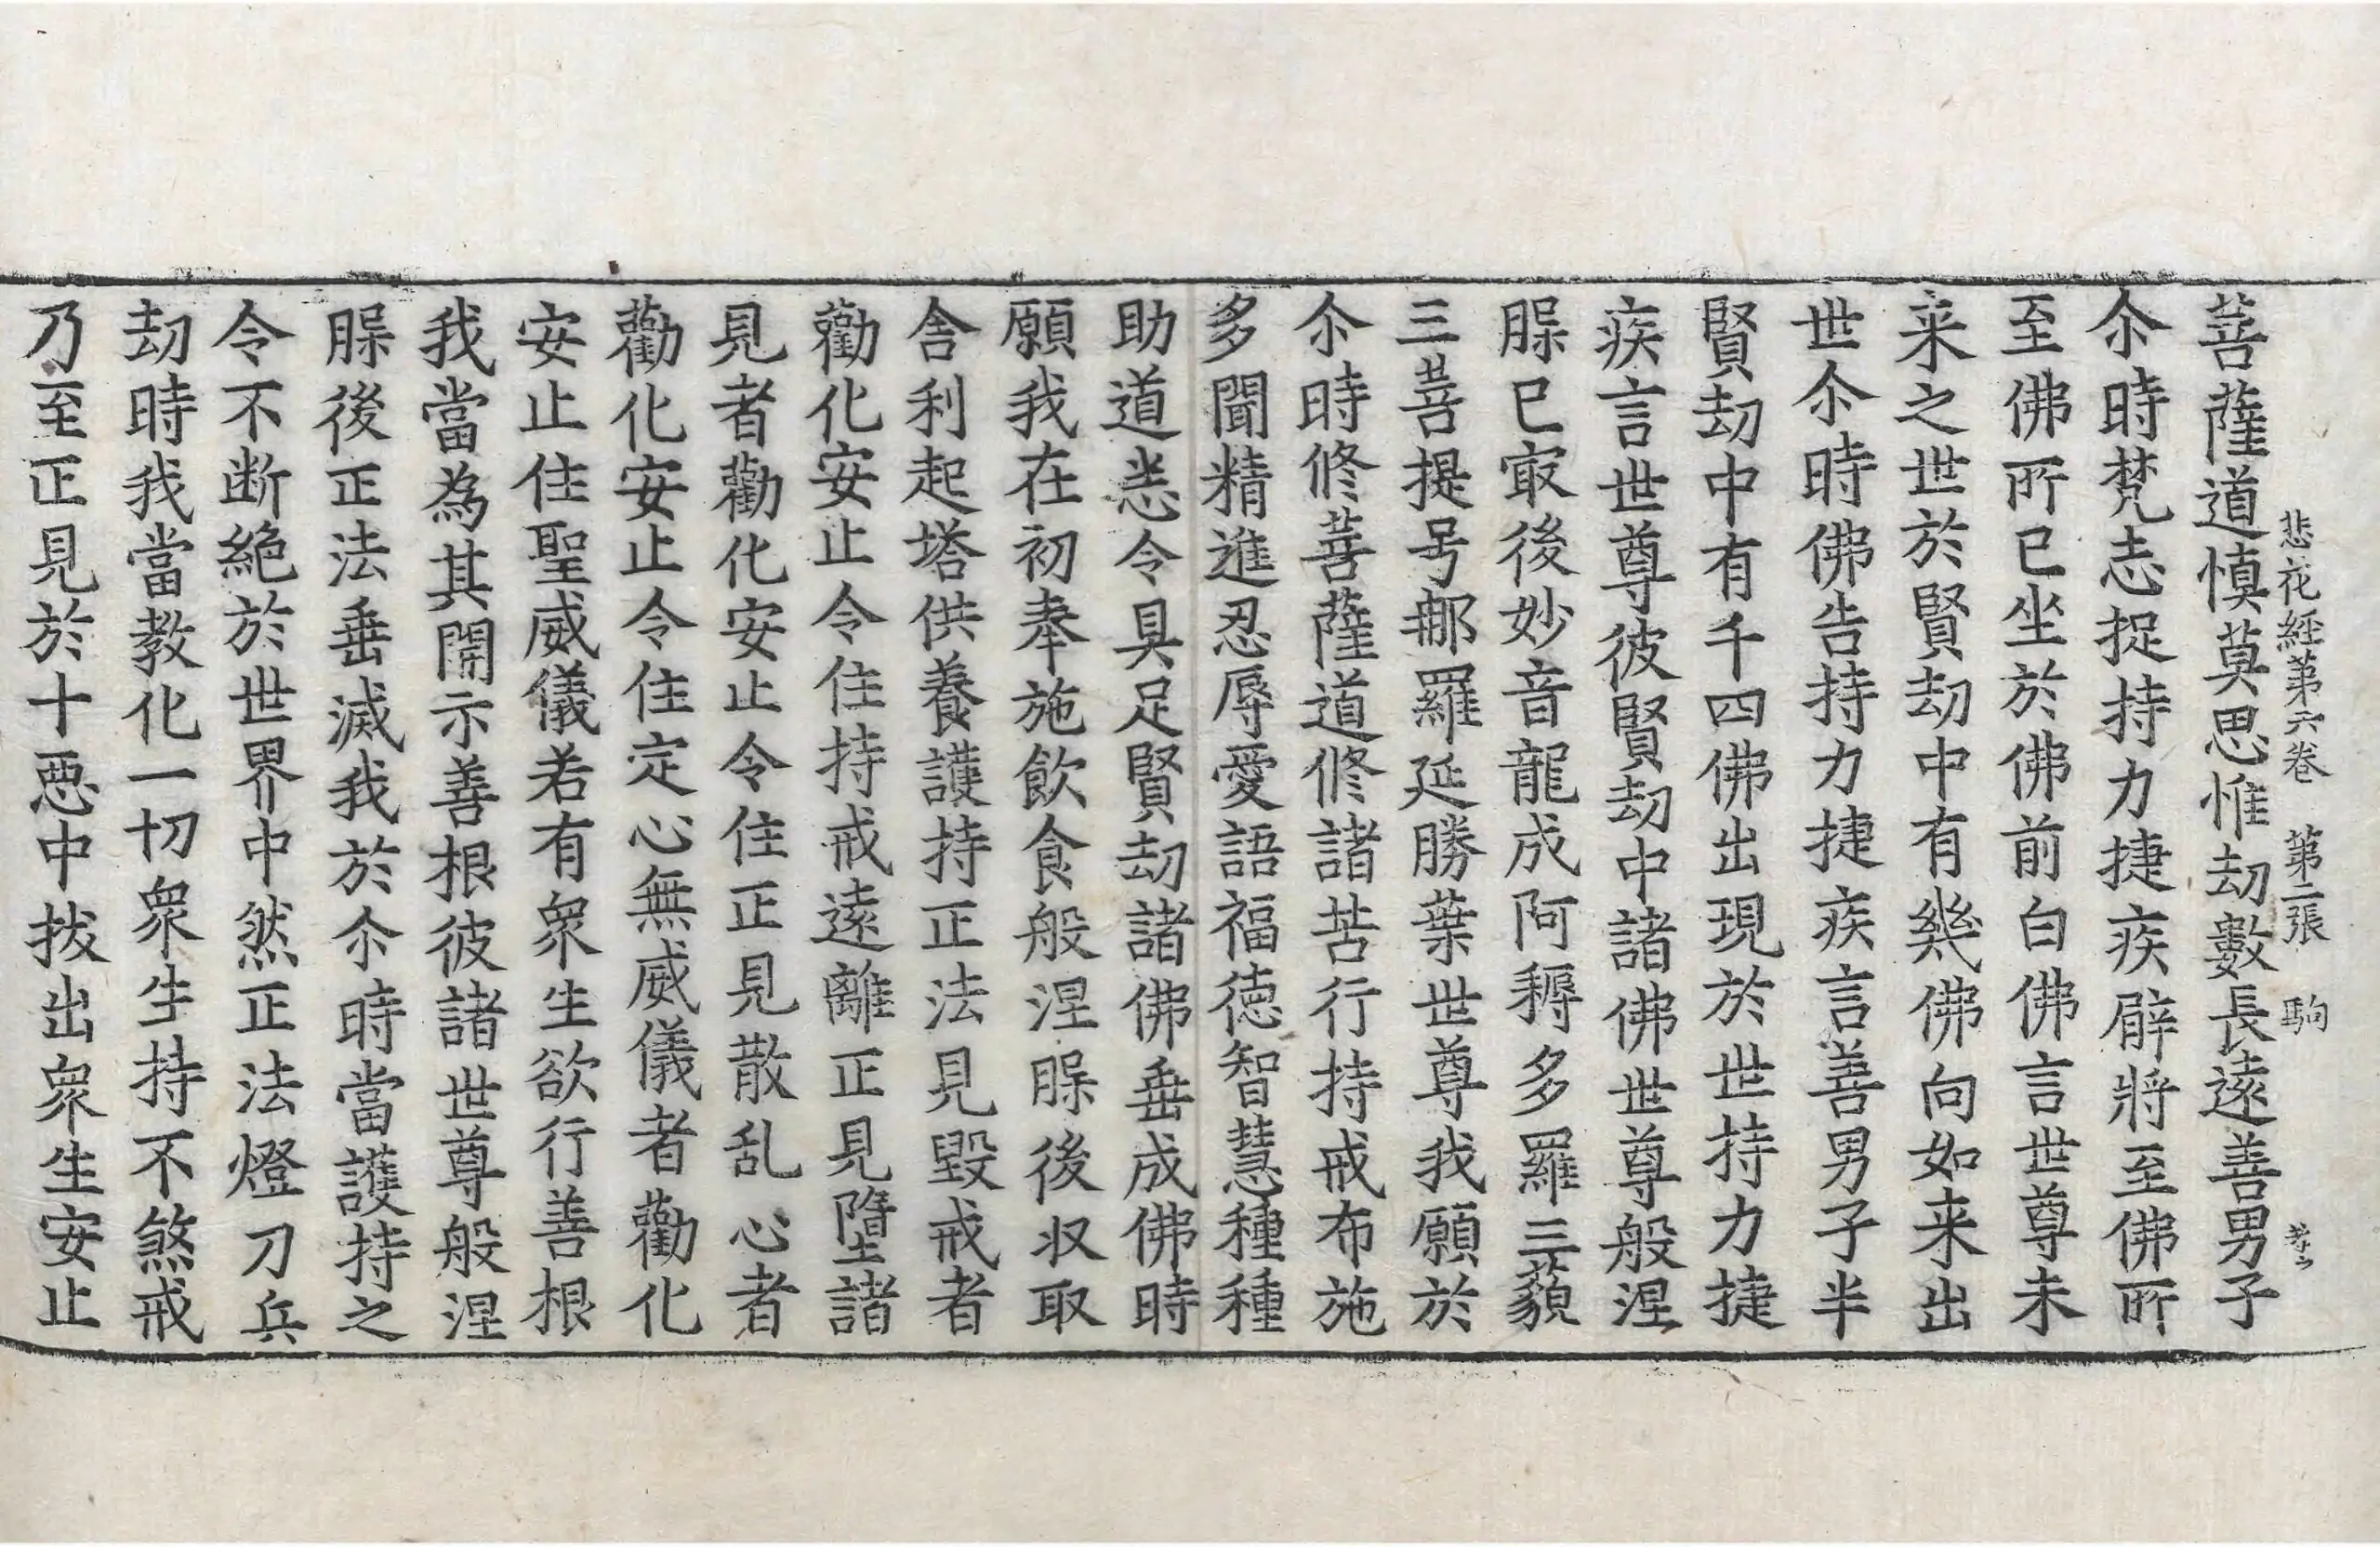 悲花経第六卷 第二張 駒
菩薩道慎莫思惟劫數長遠善男子
尒時梵志捉持力捷疾臂將至佛所
至佛所已坐於佛前白佛言世尊未
来之世於賢劫中有幾佛向如来出
世尒時佛告持力捷疾言善男子半
賢劫中有千四佛出現於世持力捷
疾言世尊彼賢劫中諸佛世尊般涅
腂已㝡後妙音龍成阿耨多羅三藐
三菩提号郍羅延勝葉世尊我願於
尒時修菩薩道修諸苦行持戒布施
多聞精進忍辱愛語福徳智慧種種
助道悉令具足賢劫諸佛垂成佛時
願我在初奉施飲食般涅腂後収取
舎利起塔供養護持正法見毀戒者
勸化安止令住持戒遠離正見墮諸
見者勸化安止令住正見散乱心者
勸化安止令住定心無威儀者勸化
安止住聖威儀若有衆生欲行善根
我當為其開示善根彼諸世尊般涅
腂後正法垂滅我於尒時當護持之
令不断絶於世界中然正法燈刀兵
劫時我當教化一切衆生持不煞戒
乃至正見於十惡中拔出衆生安止